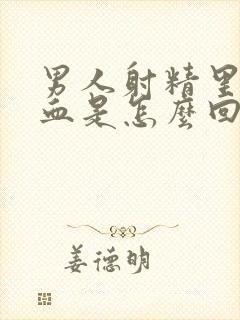 男人射精里
血是怎麼回
姜德明